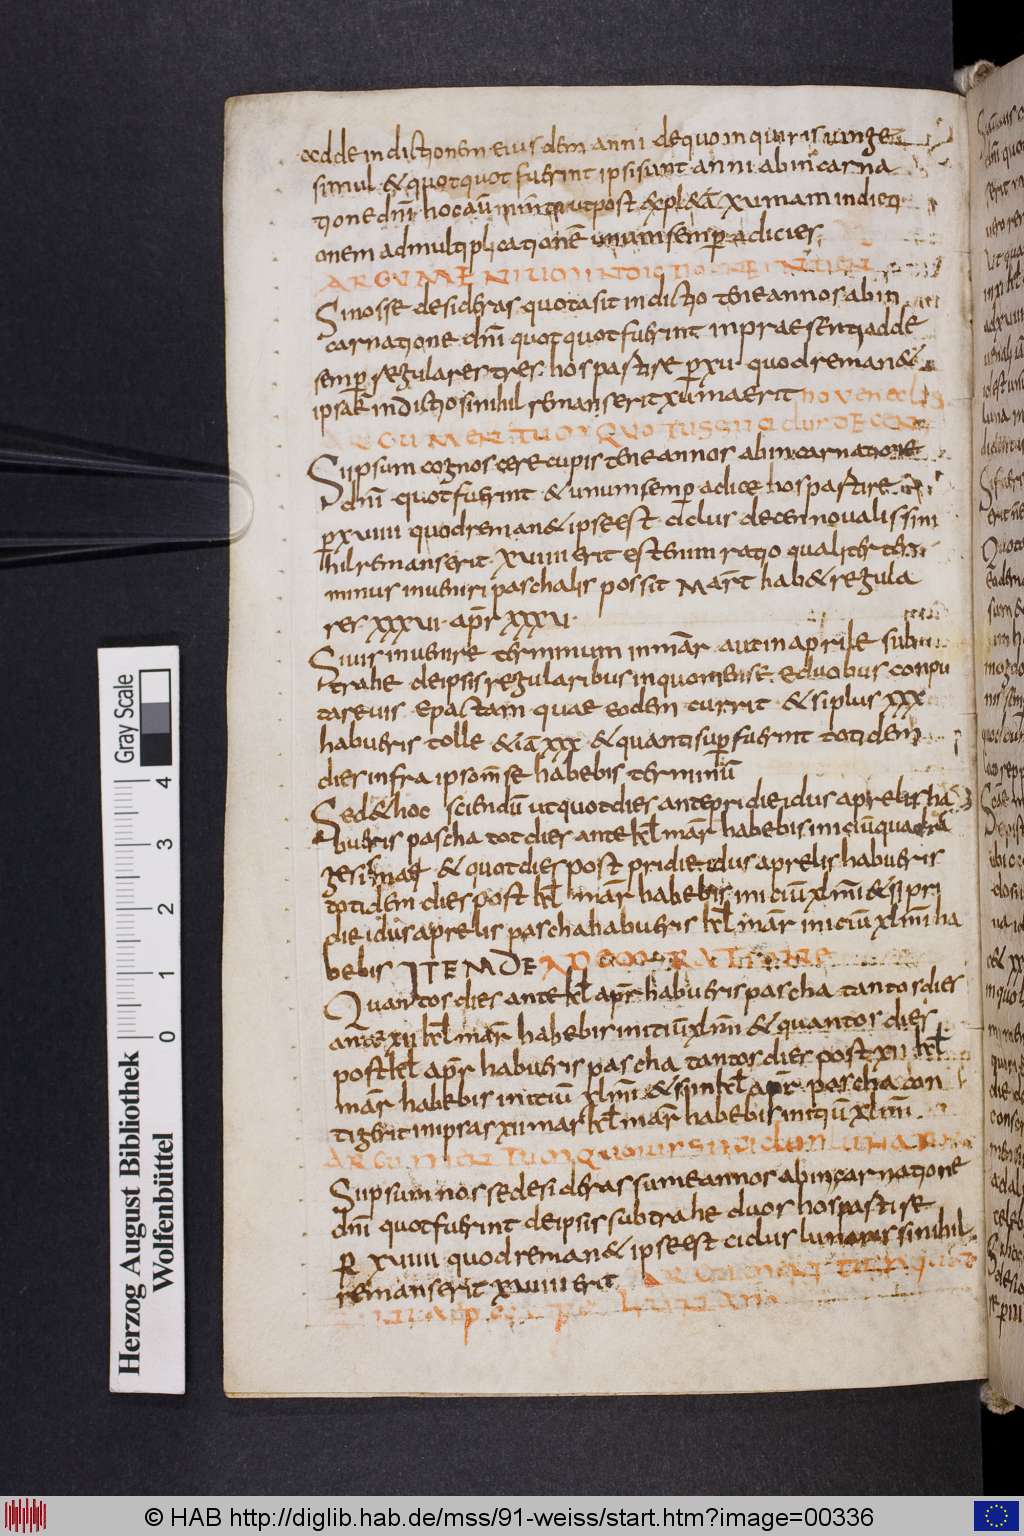 adde indictionem eius dem anni de quo inquiris iunge
simul & quotquot fuerint ipsi sunt anni ab incarna
tione dñi hoc
onem ad multiplicationē unum semp adicies
ARGUMENTUM
Si nosse desideras quota sit indictio tene annos ab in
carnatione dñi quotquot fuerint in praesenti adde
semp regulares tres hos partire p xv quod reman&
ipsa ē indictio si nihil remanserit xv ma erit
ARGUMENTUM QUOTUS SIT CICLUS DECEN
Si ipsum cognoscere cupis tene annos ab incarnatione
dñi quot fuerint & unum semp adice hos partire
p xviiii quod reman& ipse est ciclus decennovalis si ni
hil remanserit xviiii erit est enim ratio qualiter ter
minus inveniri paschalis possit Mart hab& regula
res xxxvi apr xxxv
Si vis invenire terminum in mar aut in aprile sub
trahe de ipsis regularibus in quo mense e duobus conpu
tare vis epactam quae eodem currit & si plus xxx
habueris tolle xxx & quanti sup fuerint totidem
dies infra ipso mse habebis terminū
Sed & hoc sciendū ut quot dies ante pridie idus aprelis ha
bueris pascha tot dies ante kl mar habebis iniciū quadra
gesimae & quot dies post pridie idus aprelis habueris
totidem dies post kl mar habebis iniciū xlmi & si pri
die idus aprelis pascha habueris kl mar iniciū xlmi ha
bebis ITEM DE
Quantos dies ante kl apr habueris pascha tantos dies
ante xii kl mar habebis initiū xlmi & quantos dies
post kl apr habueris pascha tantos dies post xii kl
mar habebis initiū xlmi & si in kl apr pascha con
tigerit in ipsas xii mar kl mar habebis initiū xlmi
ARGUMENTUM QUOTUS SIT CICLUS LUNARIS
Si ipsum nosse desideras sume annos ab incarnatione
dñi quot fuerint de ipsis subtrahe duos hos partire
p xviiii quod reman& ipse est ciclus lunaris si nihil
remanserit xviiii erit ARGUMENTUM
Herzog August Bibliothek
Wolfenbüttel
Gray Scale
0 1 2 3 4
© HAB http://diglib.hab.de/mss/91-weiss/start.htm?image=00336